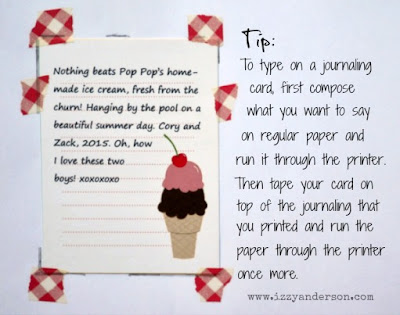 Nothing beats Pop Pop's home-
made ice cream, fresh from the
churn! Hanging by the pool on a
beautiful summer day. Cory and
Zack, 2015. Oh, how
I love these two
boys! xoxoxoxo
Tip:
To type on a journaling
card, first compose
what you want to say
on regular paper and
run it through the printer.
Then tape your card on
top of the journaling that
you printed and run the
paper through the printer
once more.
www.izzyanderson.com